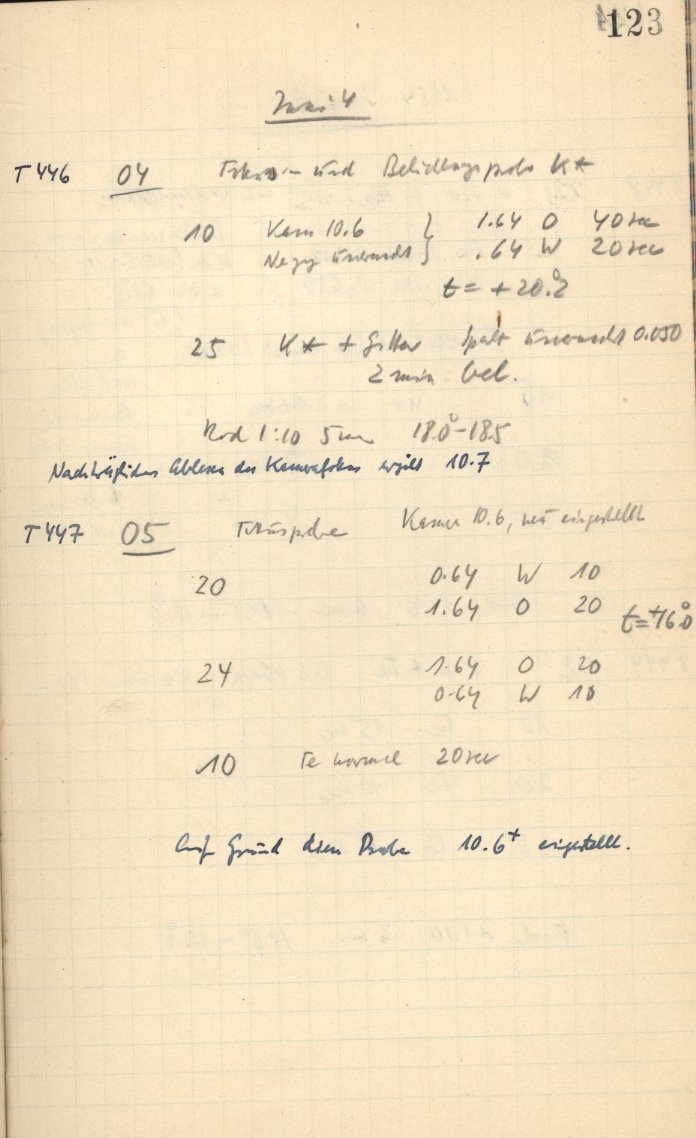 123
Juni 4
T 446 04 Fokus- und Belichtungsprobe K*
10 Kam 10.6 } 1.64 O 40 sec
} .64 W 20 sec
t = + 20.°2
25 K* + Gitter Spalt 0.050
2 min bel.
Rod 1:10 5 m 18.°0 - 18.5
Nachträgliches Ablesen des Kamerafokus ergibt 10.7
T 447 05 Fokusprobe Kamera 10.6, neu eingestellt
20 0.64 W 10
1.64 O 20 t = +16.°0
24 1.64 O 20
0.64 W 10
10 Fe normal 20 sec
Auf Grund dieser Probe 10.6+ eingestellt.